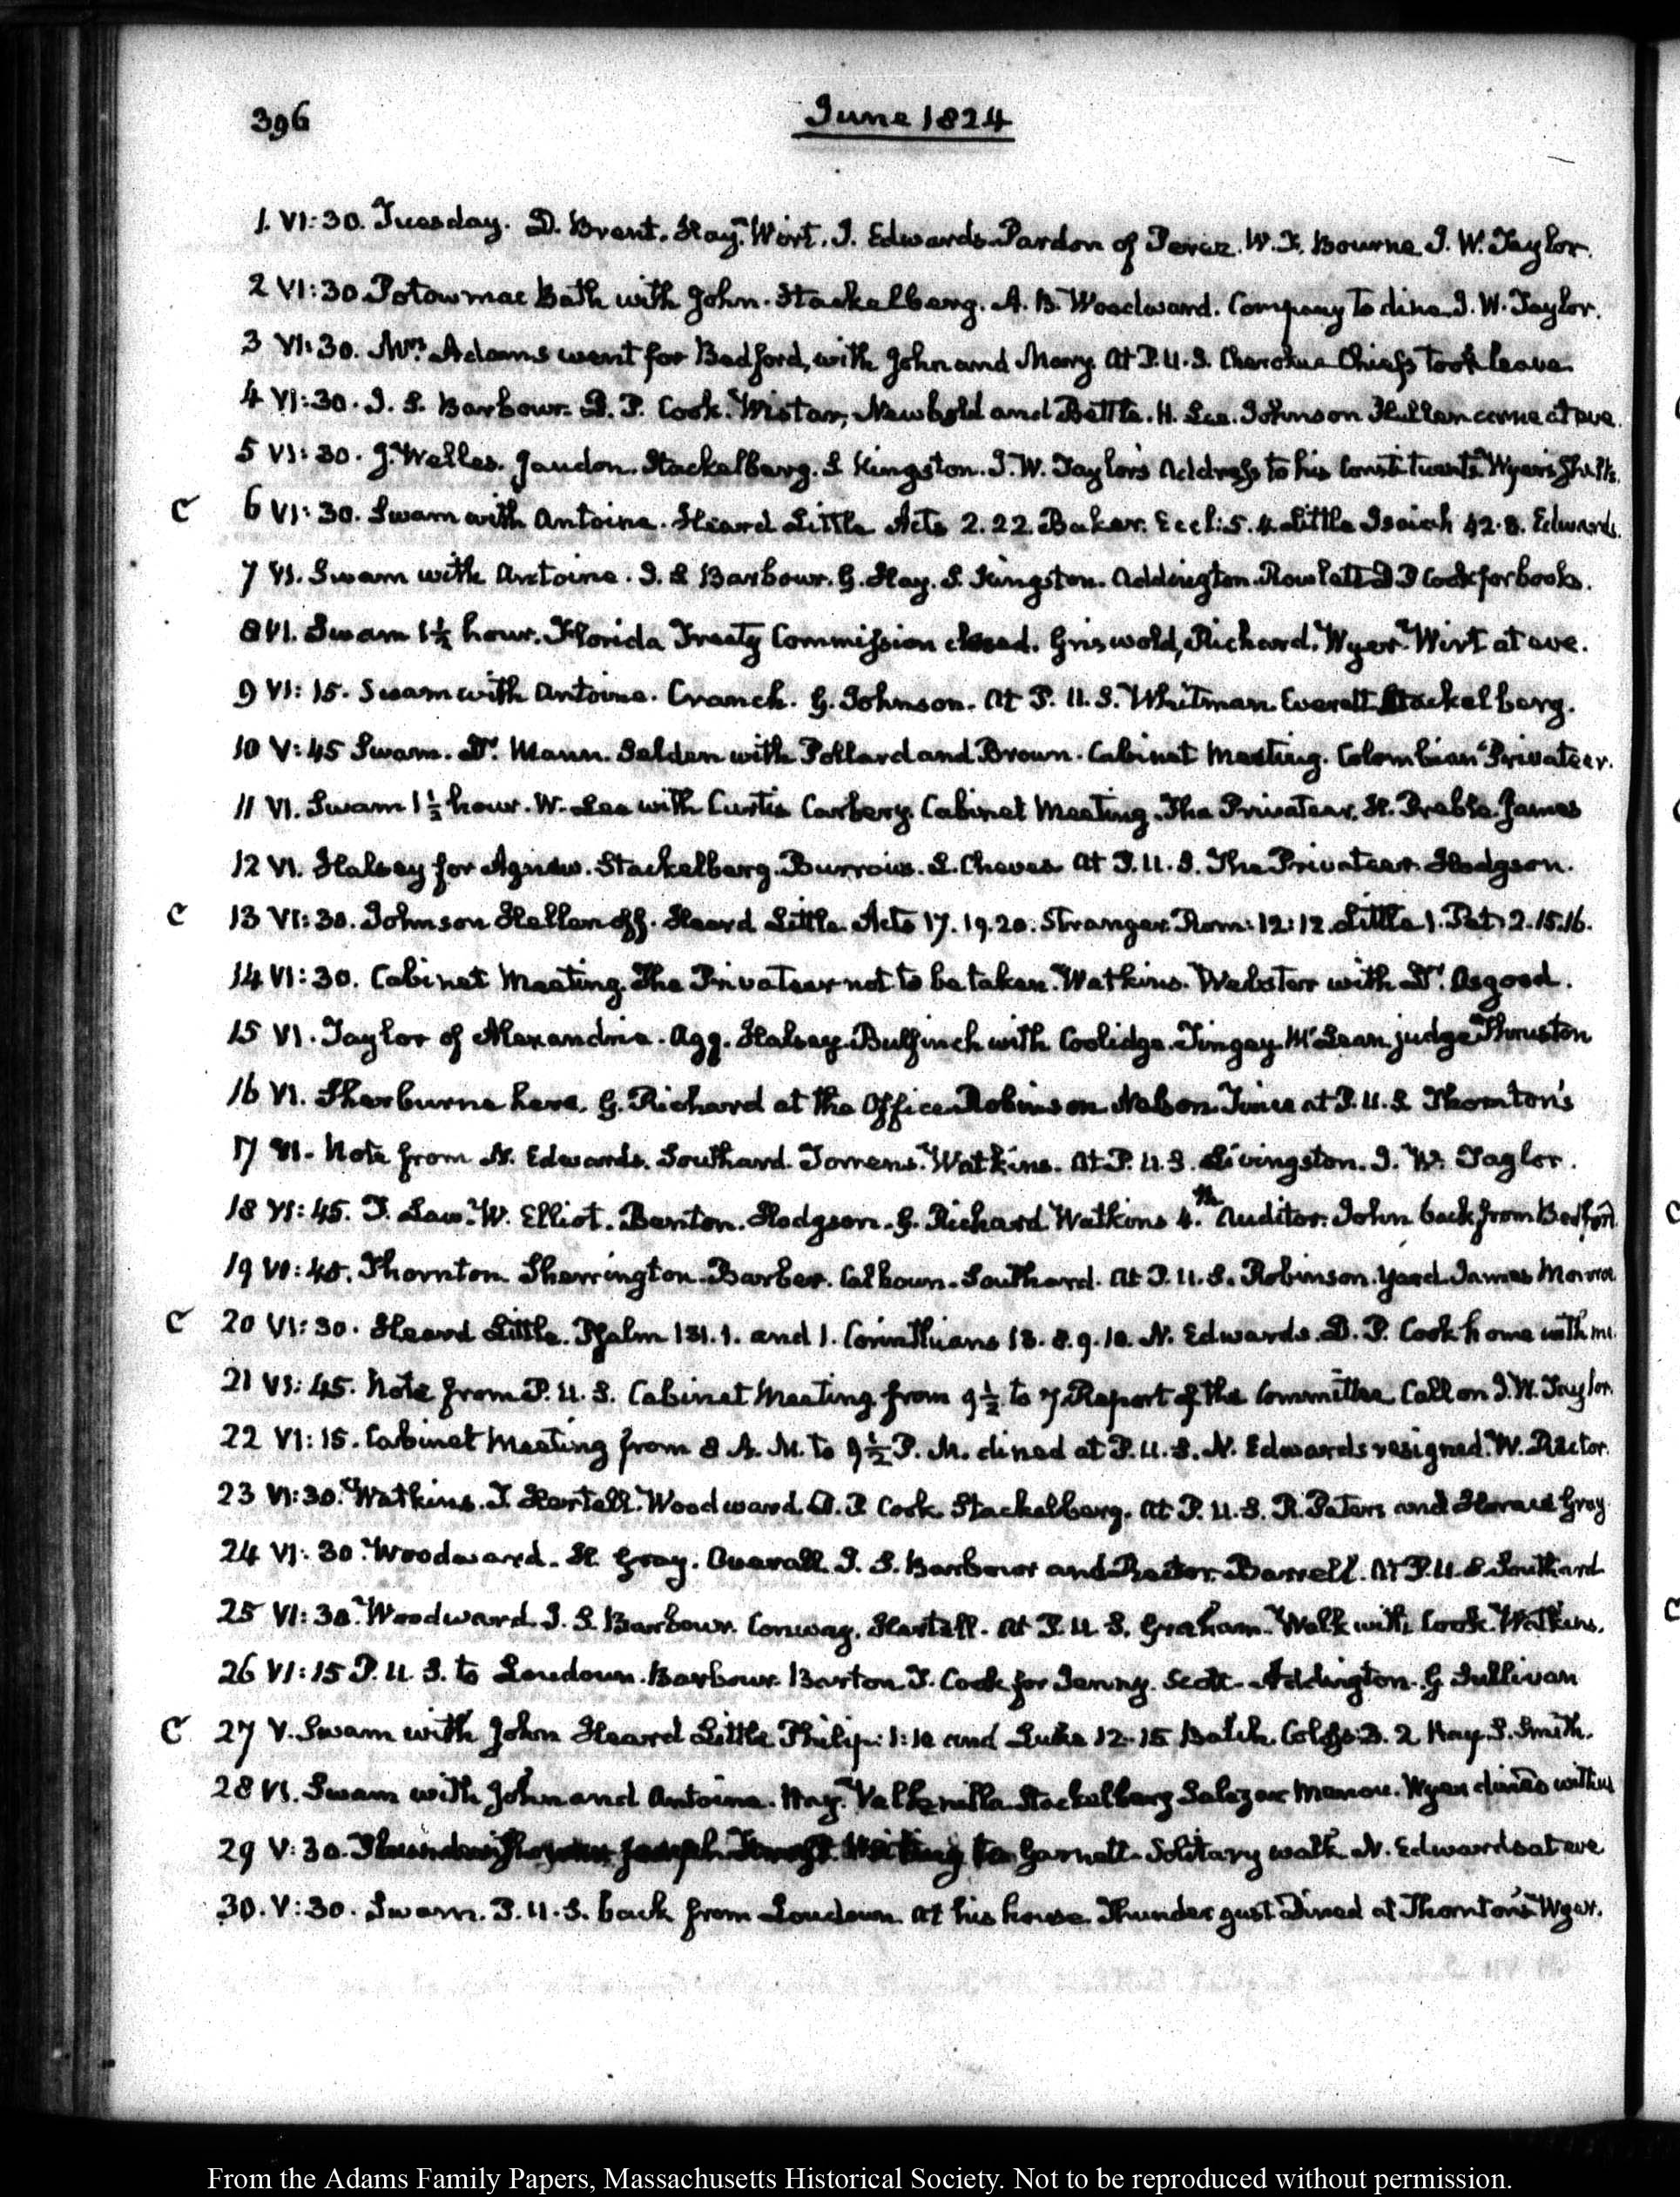 396
June 1824
1. VI:30. Tuesday. D. Brent. Hay. Wirt. I. Edwards. Pardon of Perez. W. F. Bourne J. W. Taylor.
2 VI:30 Potowmac Bath with John. Stackelberg. A. B. Woodward. Company to dine J. W. Taylor.
3 VI:30. Mrs. Adams went for Bedford, with John and Mary. At P.U.S. Cherokee Chiefs took leave.
4 VI:30. J. S. Barbour. D. P. Cook. Wistar, Newbold and Bettle. H. Lee. Johnson Hellen came at eve.
5 VI:30. J. Welles. Jaudon. Stackelberg. S Kingston. J. W. Taylor's Address to his Constituents. Wyer's
C 6 VI:30. Swam with Antoine. Heard Little Acts 2.22. Baker. Eccl:5.4. Little Isaiah 42.8. Edwards.
7 VI. Swam with Antoine. J. S Barbour. G. Hay. S. Kingston. Addington. Rowlett D P Cook for books.
8 VI. Swam 1½ hour. Florida Treaty Commission closed. Griswold, Richard. Wyer. Wirt at eve.
9 VI:15. Swam with Antoine. Cranch. G. Johnson. At P.U.S. Whitman. Everett Stackelberg.
10 V:45 Swam. Dr. Mann. Selden with Pollard and Brown. Cabinet Meeting. Colombian Privateer.
11 VI. Swam 1½ hour. W. Lee with Curtis Carbery. Cabinet Meeting. The Privateer. H. Preble. James
12 VI. Halsey for Agnew. Stackelberg. Burrows. L. Cheves At P.U.S. The Privateer. Hodgson.
C 13 VI:30. Johnson Hellen off. Heard Little Acts 17.19.20. Stranger Rom:12:12. Little 1. Pet:2.15.16.
14 VI:30. Cabinet Meeting. The Privateer not to be taken. Watkins. Webster with Dr. Osgood.
15 VI. Taylor of Alexandria. Agg. Halsey. Bulfinch with Coolidge. Tingey. McLean judge Thruston
16 VI. Sherburne here. G. Richard at the Office Robinson Nelson. Twice at P.U.S Thornton's
17 VI. Note from N. Edwards. Southard. Torrens. Watkins. At P.U.S. Livingston. J. W. Taylor.
18 VI:45. T. Law. W. Elliot. Benton. Hodgson. G. Richard Watkins 4.th Auditor. John back from Bedford
19 VI:45. Thornton. Sherrington. Barber. Calhoun. Southard. At P.U.S. Robinson. Yard. James Monroe
C 20 VI:30. Heard Little. Psalm 131.1. and 1. Corinthians 13.8.9.10. N. Edwards. D. P. Cook home with me.
21 VI:45. Note from P.U.S. Cabinet Meeting from 9½ to 7. Report of the Committee. Call on J. W. Taylor.
22 VI:15. Cabinet Meeting from 8 A.M. to 9½ P.M. dined at P.U.S. N. Edwards resigned. W. Rector.
23 VI:30. Watkins. T Hertell. Woodward. D. P. Cook. Stackelberg. At P.U.S. R. Peters and Horace Gray
24 VI:30. Woodward. H. Gray. Overall. J. S. Barbour and Rector. Barrell. At P.U.S. Southard
25 VI:30. Woodward. J. S. Barbour. Conway. Hertell. At P.U.S. Graham. Walk with Cook. Watkins.
26 VI:15 P.U.S. to Loudoun. Barbour. Barton. J. Cook for Jenny. Scott. Addington. G Sullivan
C 27 V. Swam with John Heard Little Philip:1:10 and Luke 12.15 Balch. Coloss:3.2 Hay. S. Smith.
28 VI. Swam with John and Antoine. Hay. Stackelberg Salazar Menou. Wyer dines with us
29 V:30. Garnett. Solitary walk. N. Edwards at eve
30. V:30. Swam. P.U.S. back from Loudoun. At his house. Thunder gust Dined at Thornton's Wyer.
From the Adams Family Papers, Massachusetts Historical Society. Not to be reproduced without permission.